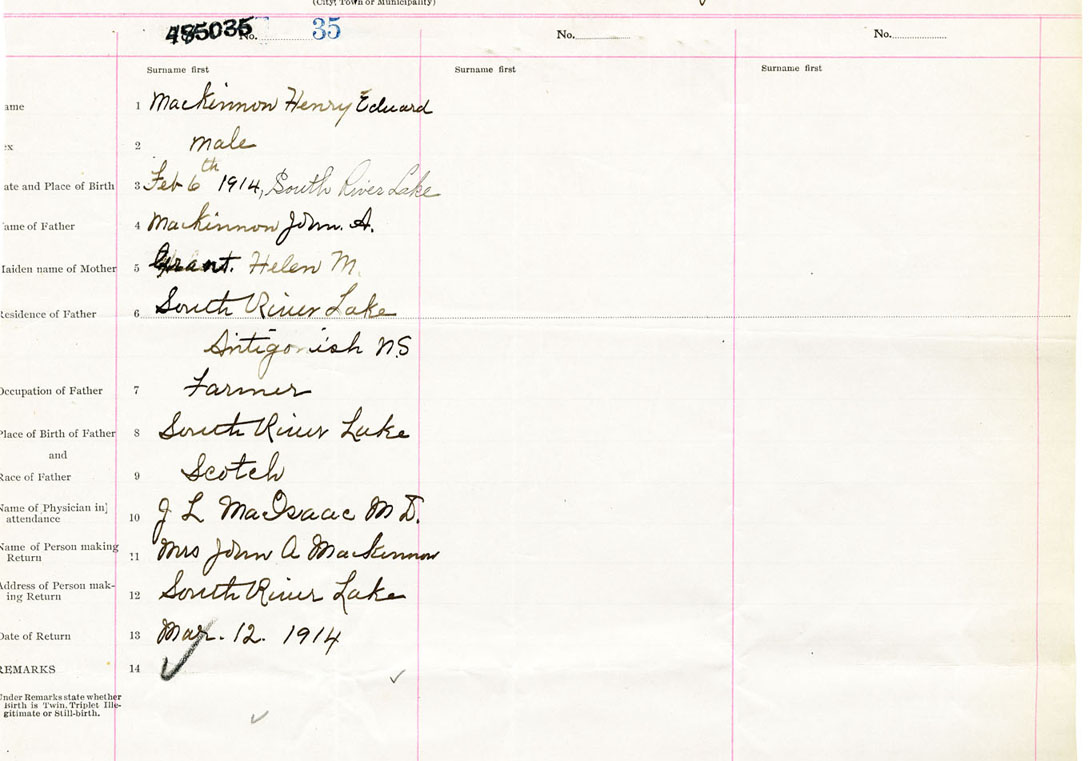 (City, Town or Municipality)
485035 No. 35 No. No.
Surname first Surname first Surname first
ame 1 MacKinnon Henry Edward
ex 2 male
ate and Place of Birth 3 Feb 6th 1914, South River Lake
ame of Father 4 MacKinnon John. A.
Maiden name of Mother 5 Grant. Helen M.
Residence of Father 6 South River Lake
Antigonish N.S
Occupation of Father 7 Farmer
Place of Birth of Father 8 South River Lake
and
Race of Father 9 Scotch
Name of Physician in
attendance 10 J L MacIsaac M D.
Name of Person making
Return 11 Mrs John A MacKinnon
Address of Person mak-
ing Return 12 South River Lake
Date of Return 13 Mar. 12. 1914
REMARKS 14
Under Remarks state whether
Birth is Twin, Triplet Ille-
gitimate or Still-birth.